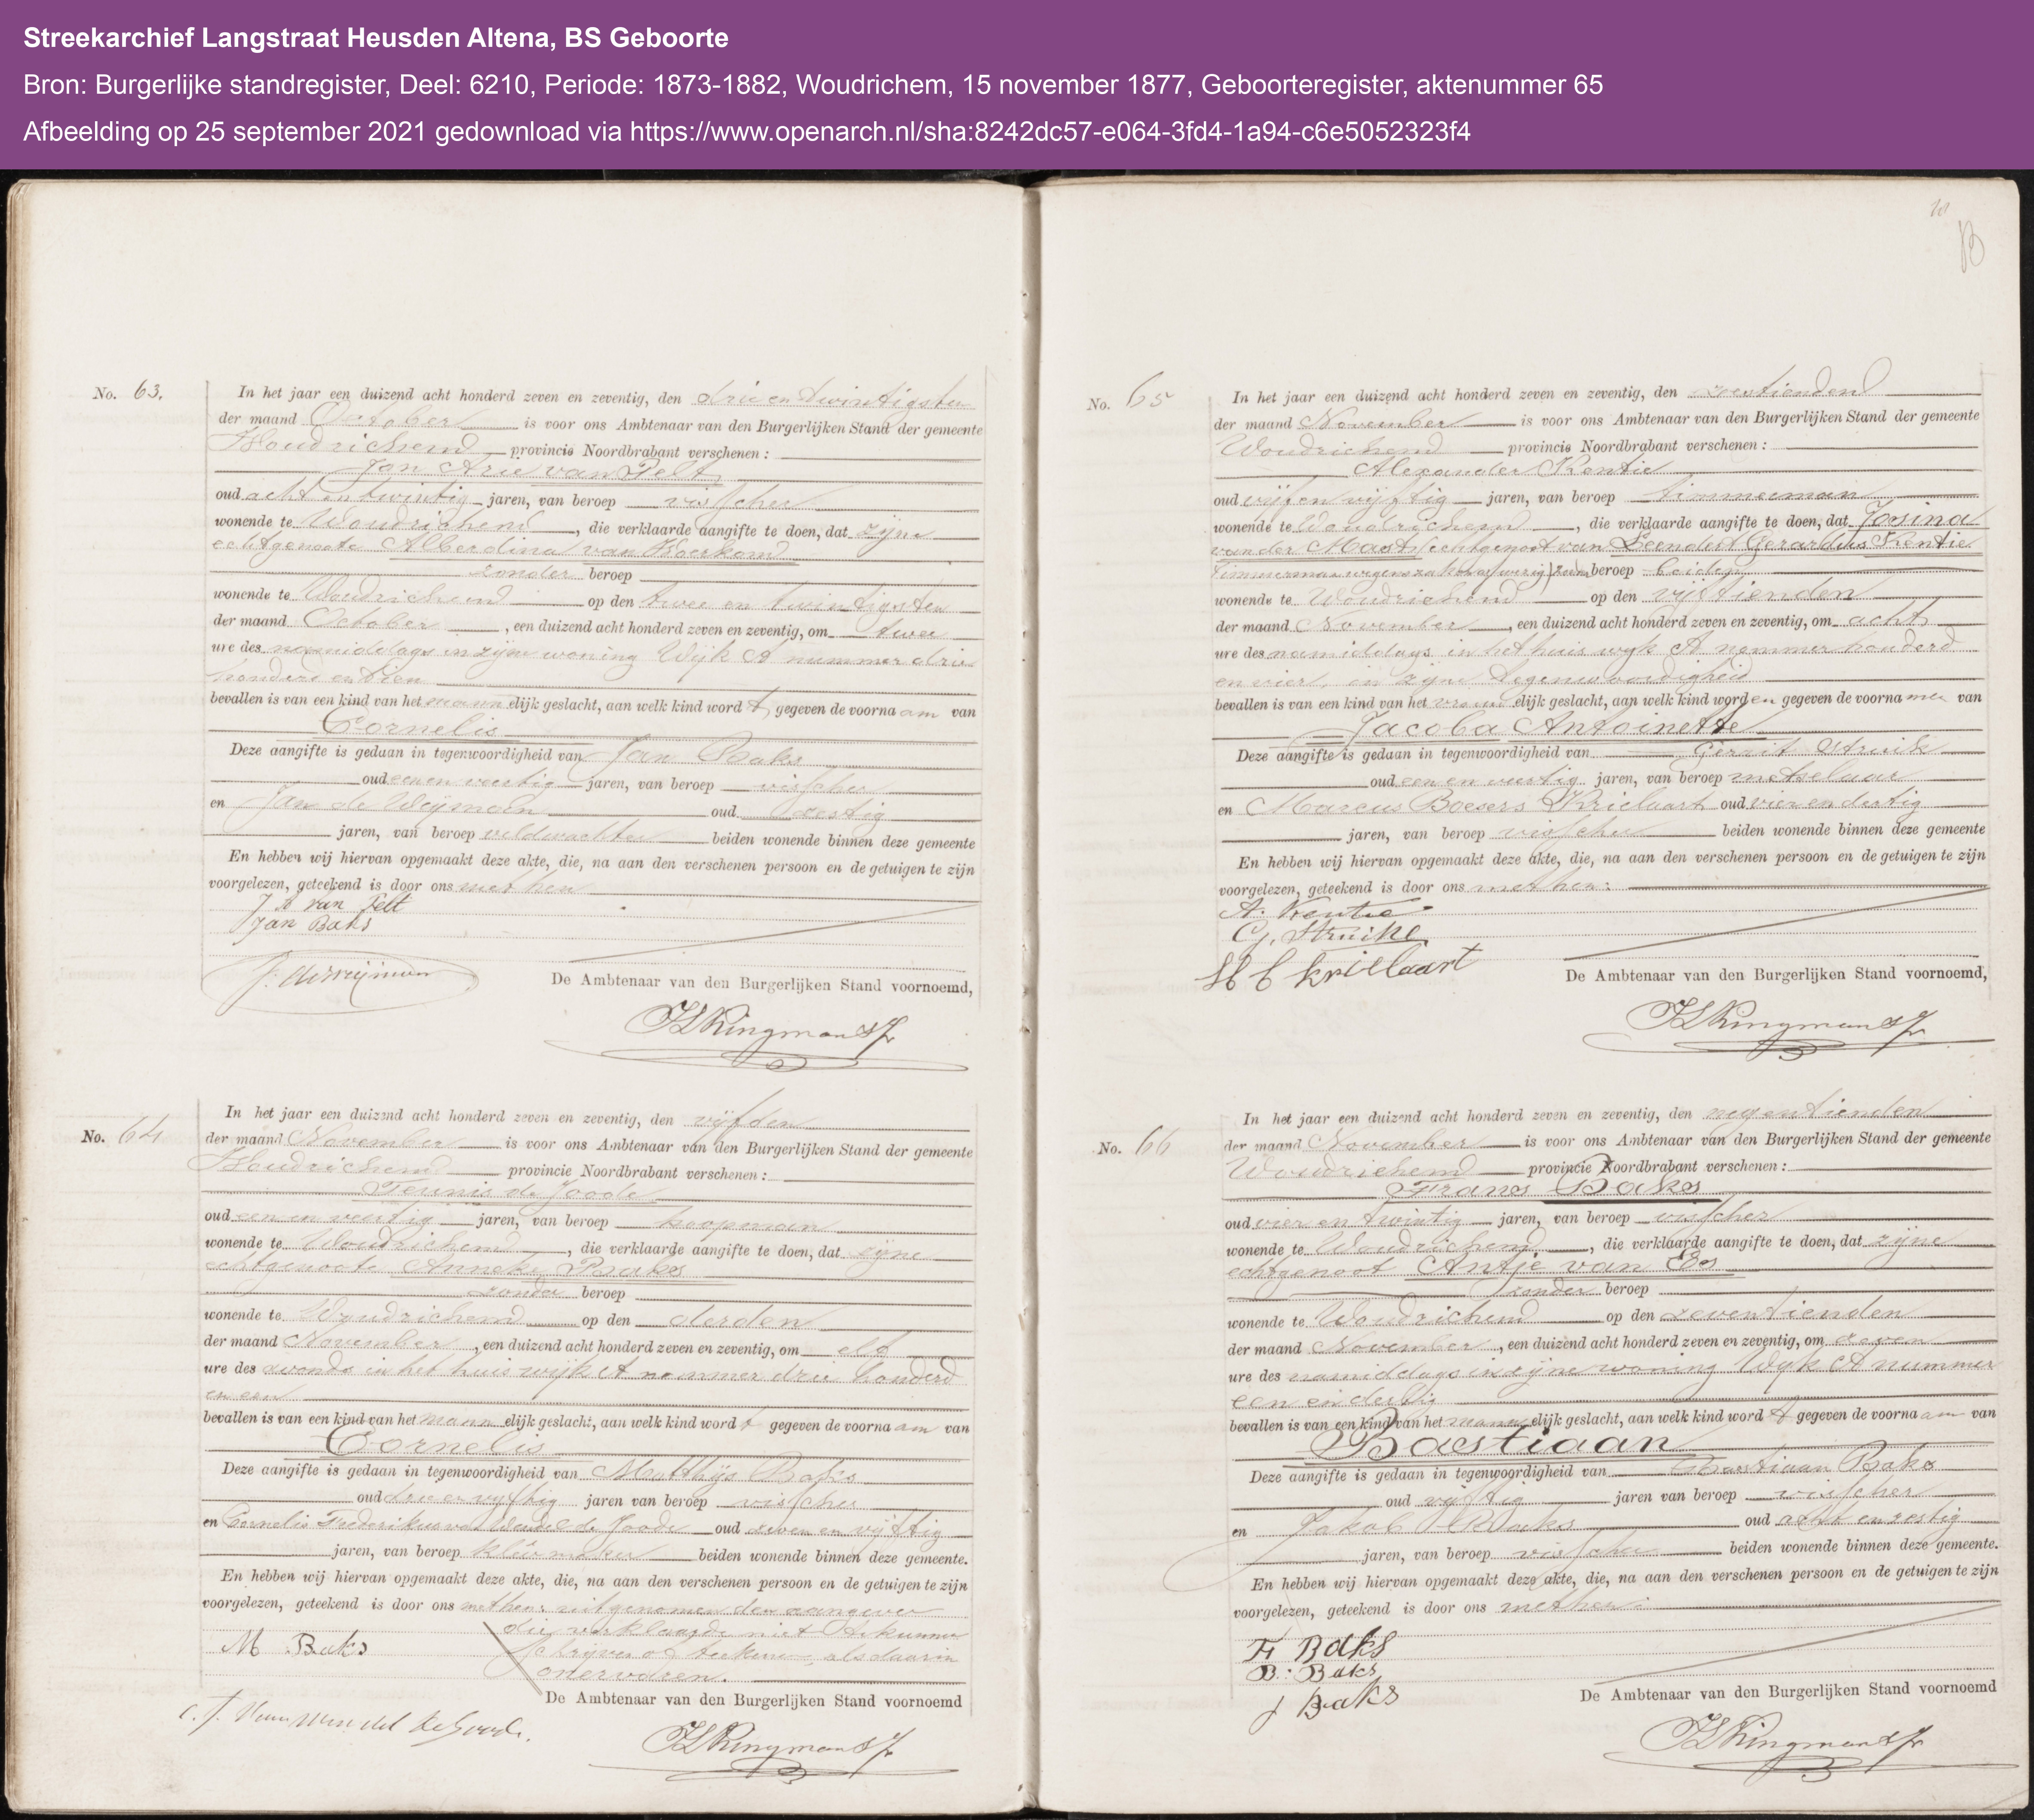 Streekarchief Langstraat Heusden Altena, BS Geboorte
Bron: Burgerlijke standregister, Deel: 6210, Periode: 1873-1882, Woudrichem, 15 november 1877, Geboorteregister, aktenummer 65
Afbeelding op 25 september 2021 gedownload via https://www.openarch.nl/sha:8242dc57-e064-3fd4-1a94-c6e5052323f4
No. 63.
In het jaar een duizend acht honderd zeven en zeventig, den drie en twintigsten
der maand October is voor ons Ambtenaar van den Burgerlijken Stand der gemeente
Woudrichem provincie Noordbrabant verschenen:
Jan Arie van Pelt
oud acht en twintig jaren, van beroep visscher
wonende te Woudrichem, die verklaarde aangifte te doen, dat zijne
echtgenoote Alberdina van Boerkom
zonder beroep
wonende te Woudrichem op den twee en twintigsten
der maand October, een duizend acht honderd zeven en zeventig, om twee
ure des namiddags in zijne woning Wijk A nummer drie
honderd en tien
bevallen is van een kind van het mannelijk geslacht, aan welk kind wordt gegeven de voornaam van
Cornelis
Deze aangifte is gedaan in tegenwoordigheid van Jan Baks
oud een en veertig jaren, van beroep visscher
en Jan de Weijman oud zestig
jaren, van beroep veldwachter beiden wonende binnen deze gemeente
En hebben wij hiervan opgemaakt deze akte, die, na aan den verschenen persoon en de getuigen te zijn
voorgelezen, geteekend is door ons met hen
J A van Pelt
Jan Baks
De Ambtenaar van den Burgerlijken Stand voornoemd,
No. 64
In het jaar een duizend acht honderd zeven en zeventig, den vijfden
der maand November is voor ons Ambtenaar van den Burgerlijken Stand der gemeente
Woudrichem provincie Noordbrabant verschenen:
Teunis de Joode
oud een en veertig jaren, van beroep koopman
wonende te Woudrichem, die verklaarde aangifte te doen, dat zijne
echtgenoote Anneke Bakes
zonder beroep
wonende te Woudrichem op den derden
der maand November, een duizend acht honderd zeven en zeventig, om elf
ure des avonds in het huis wijk A nommer drie honderd
en een
bevallen is van een kind van het mannelijk geslacht, aan welk kind wordt gegeven de voornaam van
Cornelis
Deze aangifte is gedaan in tegenwoordigheid van Matthijs Bakes
oud drie en vijftig jaren van beroep visscher
en Cornelis Frederikus van Wendel de Joode oud zeven en vijftig
jaren, van beroep kleermaker beiden wonende binnen deze gemeente.
En hebben wij hiervan opgemaakt deze akte, die, na aan den verschenen persoon en de getuigen te zijn
voorgelezen, geteekend is door ons met hen: uitgenomen den aangever
die verklaarde niet te kunnen
schrijven of teekenen, als daarin
onervaren.
M Baks
De Ambtenaar van den Burgerlijken Stand voornoemd
No. 65
In het jaar een duizend acht honderd zeven en zeventig, den zestienden
der maand November is voor ons Ambtenaar van den Burgerlijken Stand der gemeente
Woudrichem provincie Noordbrabant verschenen:
Alexander Kentie
oud vijf en vijftig jaren, van beroep timmerman
wonende te Woudrichem, die verklaarde aangifte te doen, dat Josina
van der Mast (echtgenoot van Leendert Gerardus Kentie
Timmerman wegens zaken afwezig) zonder beroep beiden
wonende te Woudrichem op den vijftienden
der maand November, een duizend acht honderd zeven en zeventig, om acht
ure des namiddags in het huis wijk A nommer honderd
en vier, in zijne tegenwoordigheid
bevallen is van een kind van het vrouwelijk geslacht, aan welk kind worden gegeven de voornamen van
Jacoba Antoinette
Deze aangifte is gedaan in tegenwoordigheid van Gerrit Struik
oud een en veertig jaren, van beroep metselaar
en Marcus Boesers Krielaart oud vier en dertig
jaren, van beroep visscher beiden wonende binnen deze gemeente
En hebben wij hiervan opgemaakt deze akte, die, na aan den verschenen persoon en de getuigen te zijn
voorgelezen, geteekend is door ons met hen:
A. Kentie
G. Struik
Krielaart
De Ambtenaar van den Burgerlijken Stand voornoemd,
No. 66
In het jaar een duizend acht honderd zeven en zeventig, den negentienden
der maand November is voor ons Ambtenaar van den Burgerlijken Stand der gemeente
Woudrichem provincie Noordbrabant verschenen:
Frans Bakes
oud vier en twintig jaren, van beroep visscher
wonende te Woudrichem, die verklaarde aangifte te doen, dat zijne
echtgenoot Antje van Es
zonder beroep
wonende te Woudrichem op den zeventienden
der maand November, een duizend acht honderd zeven en zeventig, om zeven
ure des namiddags in zijne woning Wijk A nummer
een en dertig
bevallen is van een kind van het mannelijk geslacht, aan welk kind wordt gegeven de voornaam van
Bastiaan
Deze aangifte is gedaan in tegenwoordigheid van Bastiaan Baks
oud vijftig jaren van beroep visscher
en Jakob Baks oud acht en zestig
jaren, van beroep visscher beiden wonende binnen deze gemeente.
En hebben wij hiervan opgemaakt deze akte, die, na aan den verschenen persoon en de getuigen te zijn
voorgelezen, geteekend is door ons met hen:
F Baks
B: Baks
J Baks
De Ambtenaar van den Burgerlijken Stand voornoemd